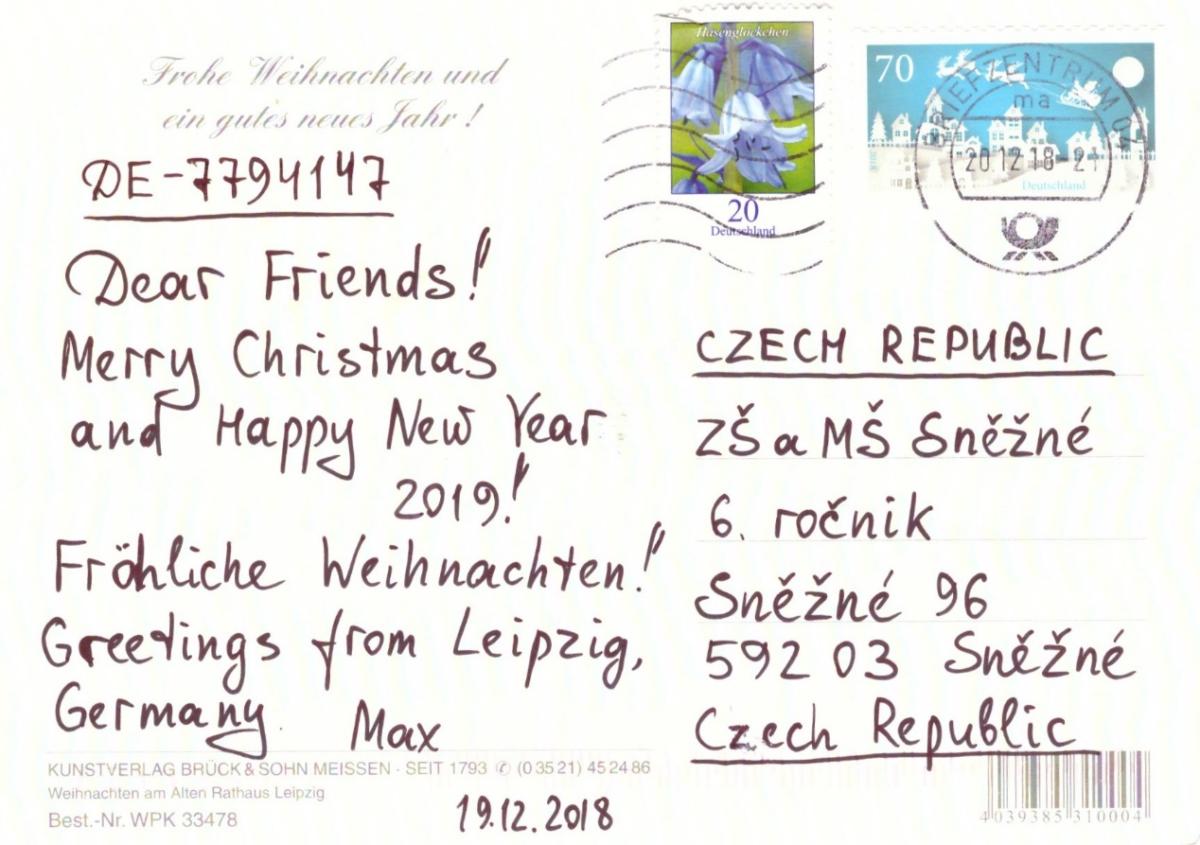 Frohe Weihnachten und
ein gutes neues Jahr !
DE-7794147
Dear Friends!
Merry Christmas
and Happy New Year
2019!
Fröhliche Weihnachten!
Greetings from Leipzig,
Germany. Max
KUNSTVERLAG BRÜCK & SOHN MEISSEN · SEIT 1793 ✆ (0 35 21) 45 24 86
Weihnachten am Alten Rathaus Leipzig
Best.-Nr. WPK 33478
19.12.2018
Hasenglöckchen
20
Deutschland
70
Deutschland
BRIEFZENTRUM 04
ma
20.12.18-21
CZECH REPUBLIC
ZŠ a MŠ Sněžné
6. ročnik
Sněžné 96
592 03 Sněžné
Czech Republic
4 039385 310004